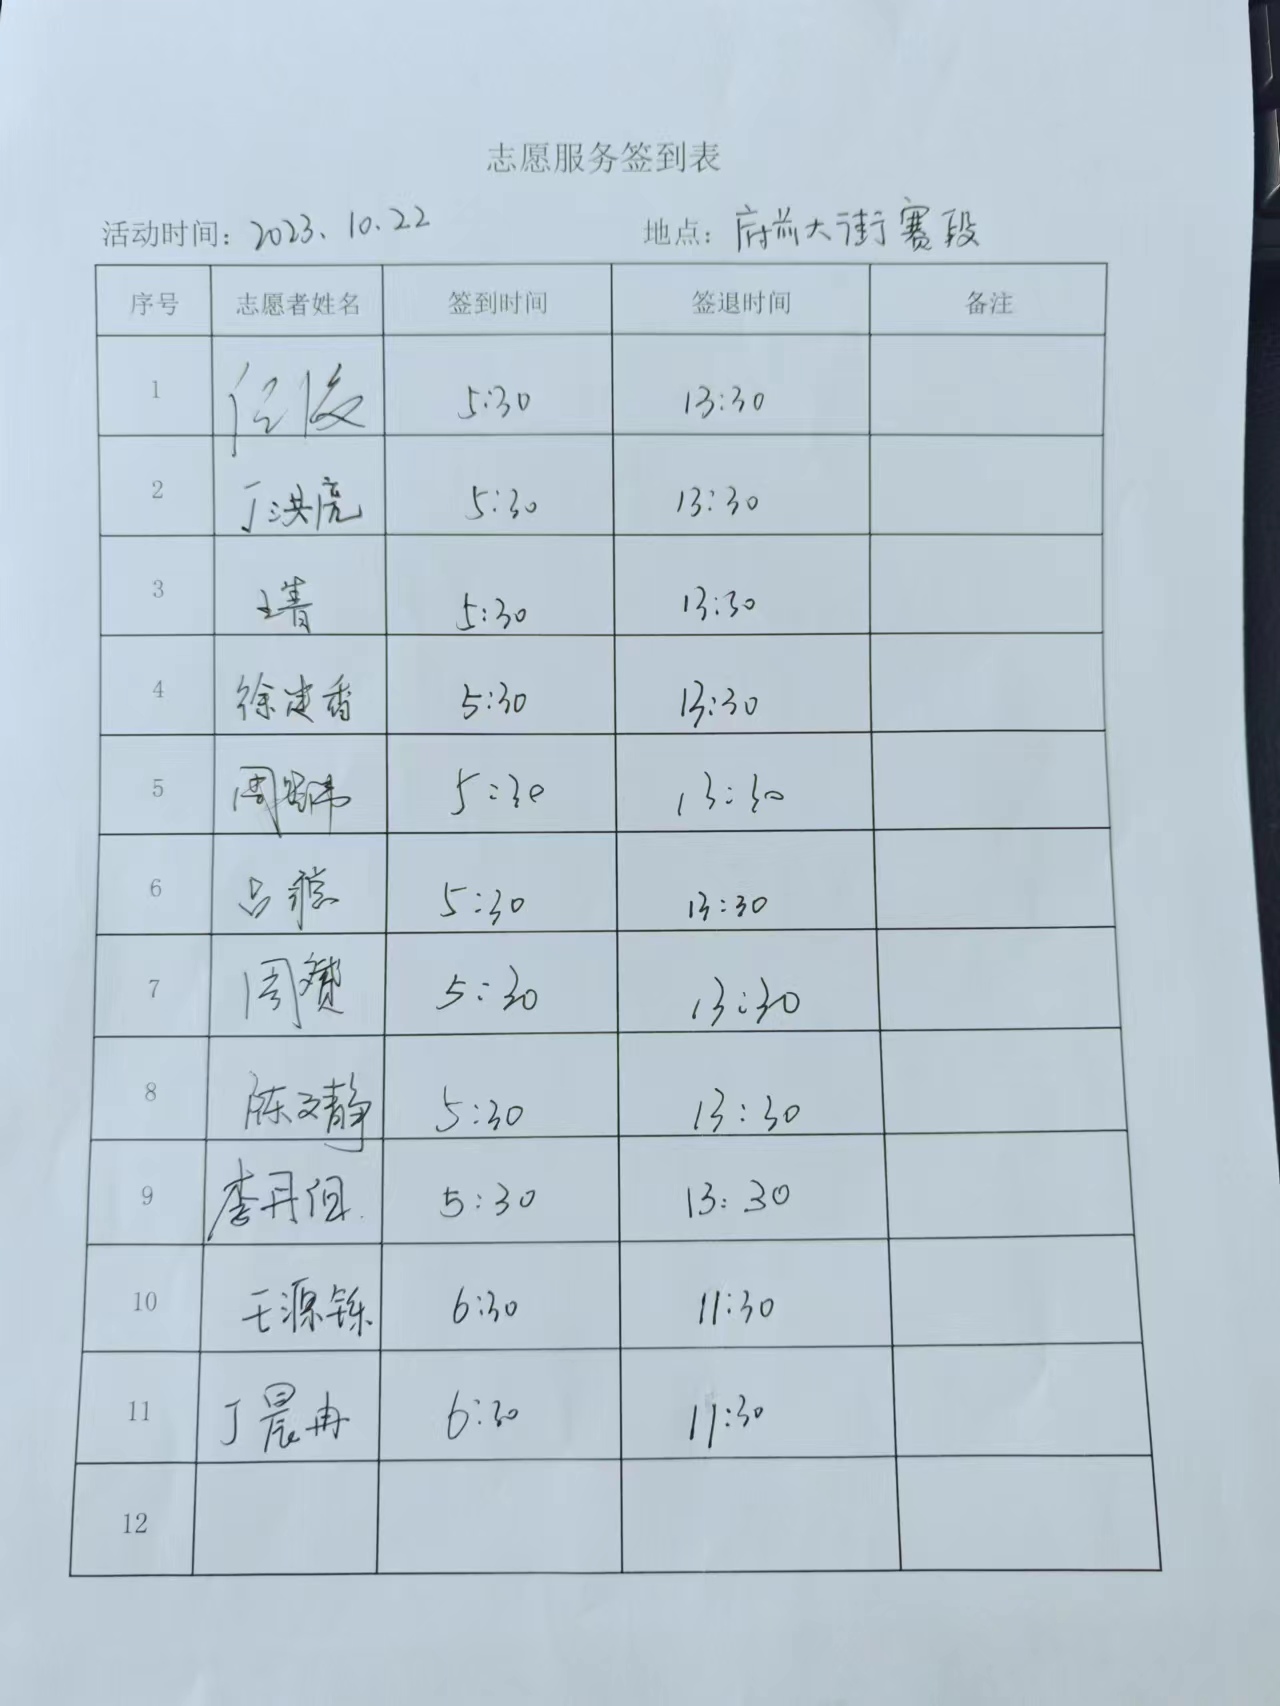 志愿服务签到表
活动时间：2023.10.22 地点：府前大街赛段
序号 志愿者姓名 签到时间 签退时间 备注
1 任俊 5:30 13:30
2 丁洪亮 5:30 13:30
3 王青 5:30 13:30
4 徐建香 5:30 13:30
5 周 5:30 13:30
6 吕 5:30 13:30
7 周赟 5:30 13:30
8 陈文静 5:30 13:30
9 李丹伹 5:30 13:30
10 王源铄 6:30 11:30
11 丁晨冉 6:30 11:30
12